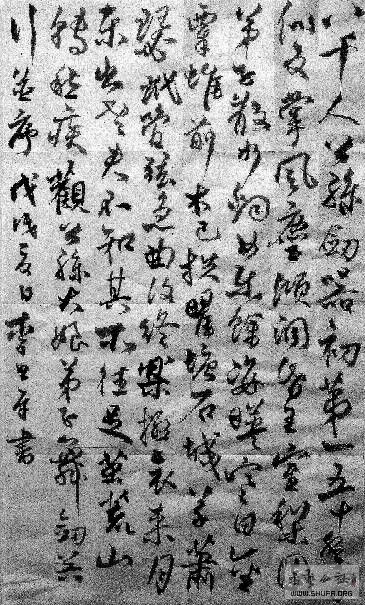 八千人公孫劍器初第一五十年
似反掌風塵傾洞昏王室梨園
弟子散如烟女樂餘姿映寒日金
粟堆前木已拱瞿塘石城草蕭
瑟玳管弦急曲復終樂極哀來月
東出老夫不知其所往足茧荒山
轉愁疾觀公孫大娘弟子舞劍器
行並序戊戌夏日李平書
WWW.SHUFA.ORG